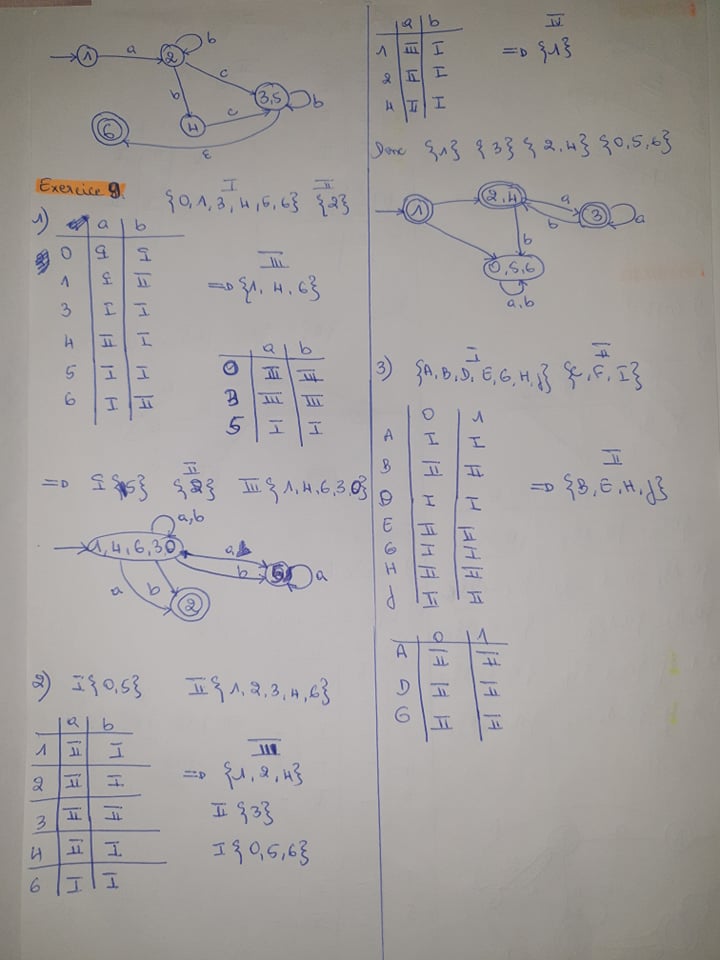 1 a 2 b
b c 3,5 b
4 c
6 ε
Exercice 9.
I II
{0,1,3,4,5,6} {2}
1)
a b
0 I I
1 I II
3 I I
4 II I
5 I I
6 I II
III
=> {1, 4, 6}
a b
0 III III
3 III III
5 I I
=> I {5} II {2} III {1,4,6,3,0}
a,b
1,4,6,3,0 a
b 5 a
a b
2
2) I {0,5} II {1,2,3,4,6}
a b
1 II I
2 II I
3 II II
4 II I
6 I I
III
=> {1,2,4}
II {3}
I {0,5,6}
a b
1 III I
2 II I
4 II I
IV
=> {1}
Donc {1} {3} {2,4} {0,5,6}
1 2,4 a 3 a
b
b
0,5,6
a,b
3) I II
{A,B,D,E,G,H,J} {C,F,I}
0 1
A I I
B II II
D I I
E II II
G I I
H II II
J II II
II
=> {B,E,H,J}
0 1
A II II
D II II
G II II